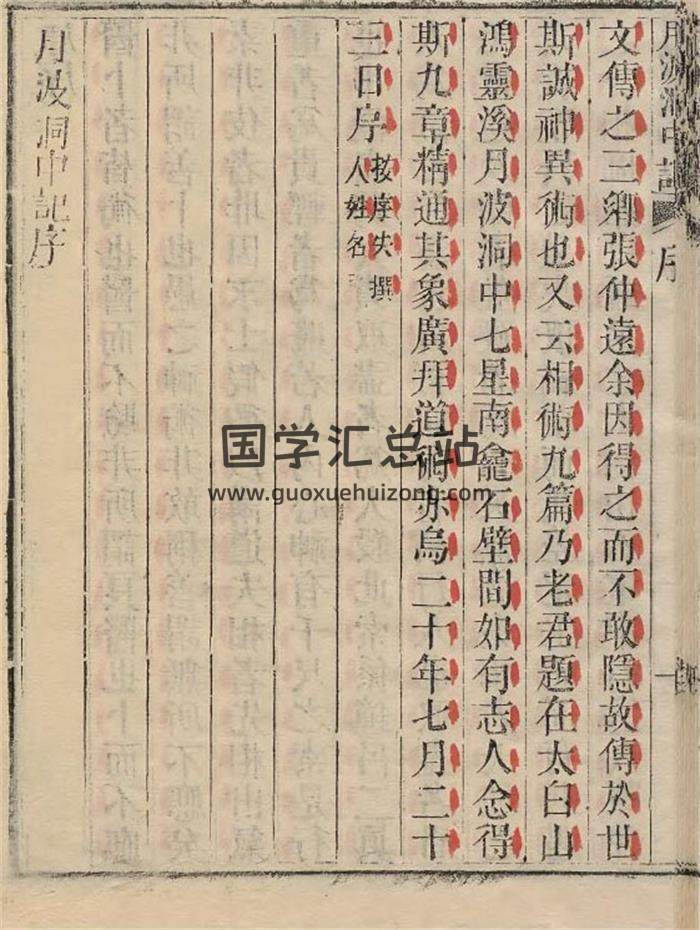 月波洞中記
序
文傳之三卿張仲遠余因得之而不敢隱故傳於世
斯誠神異術也又云相術九篇乃老君題在太白山
鴻靈溪月波洞中七星南龕石壁間如有志人念得
斯九章精通其象廣拜道術赤烏二十年七月二十
三日序
按序失撰
人姓名
月波洞中記序
国学汇总站
www.guoxuehuizong.com